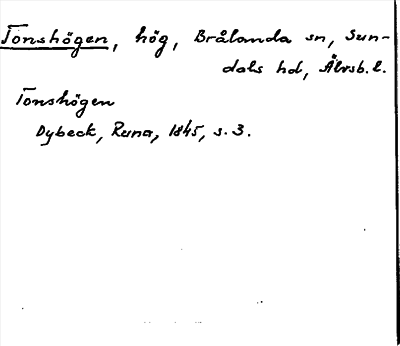 Tonshögen, hög, Brålanda sn, Sun-
dals hd, Älvsb. l.
Tonshögen
Dybeck, Runa, 1845, s. 3.